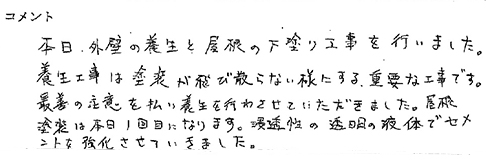 コメント
本日、外壁の養生と屋根の下塗り工事を行いました。
養生工事は塗装が飛び散らない様にする、重要な工事です。
最善の注意を払い養生を行わさせていただきました。屋根
塗装は本日1回目になります。浸透性の透明の液体でセメ
ントを強化させていきました。